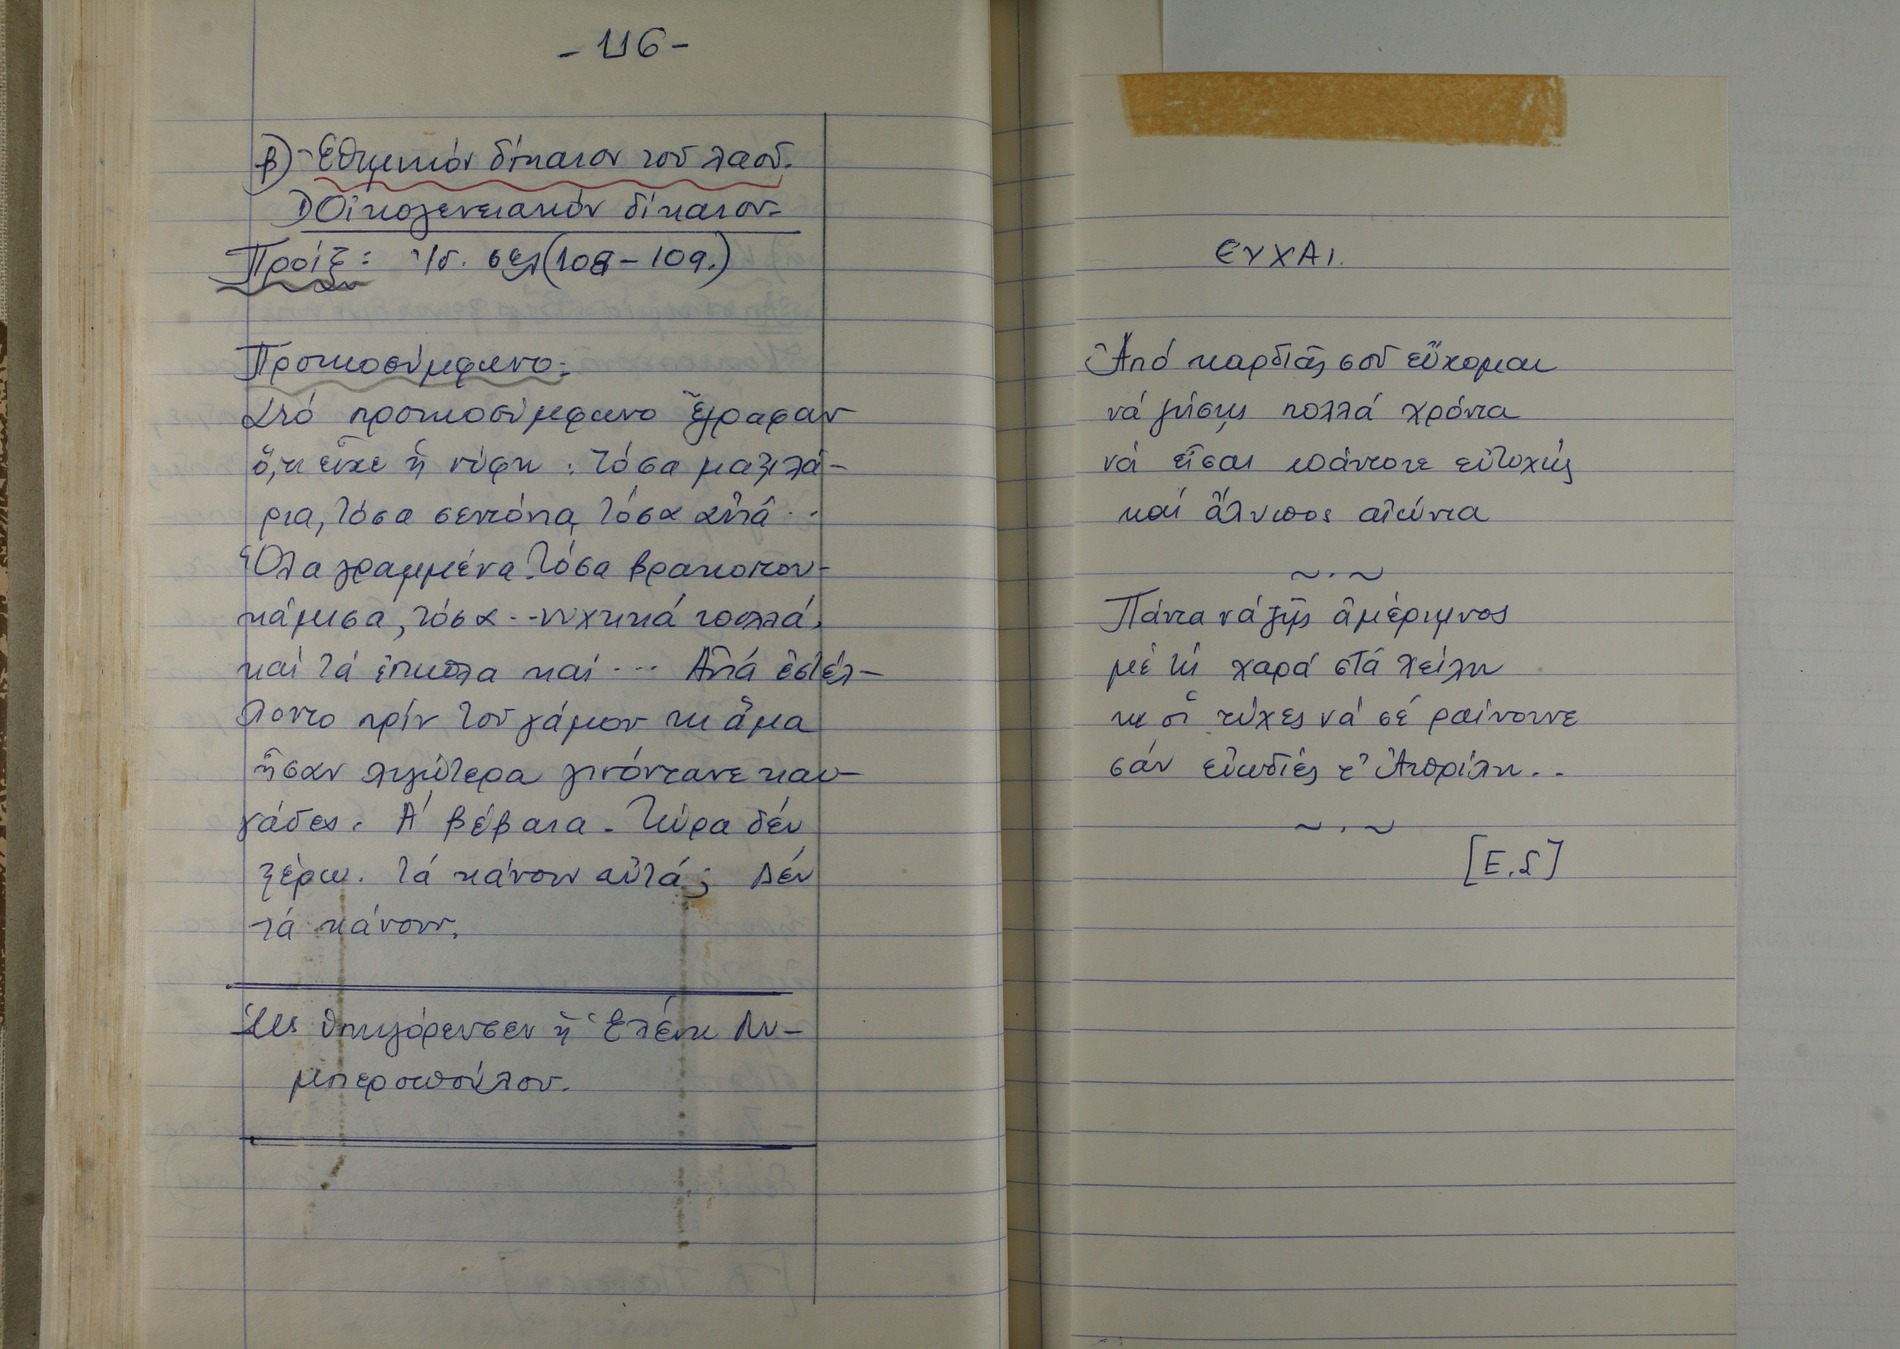 - 116 -
β) Ἐθιμικόν δίκαιον τοῦ λαοῦ.
1) Οἰκογενειακόν δίκαιον.
Προίξ: Ἰδ. σελ (108 - 109.)
Προικοσύμφωνο:
Στό προικοσύμφωνο ἔγραφαν
ὅ,τι εἶχε ἡ νύφη. Τόσα μαξιλά-
ρια, τόσα σεντόνια, τόσα αὐτά ..
Ὅλα γραμμένα. Τόσα βρακοπου-
κάμισα, τόσα .. νυχτικά πολλά,
καί τά ἔπιπλα καί ... Αὐτά ἐστέλ-
λοντο πρίν τοῦ γάμου κι ἅμα
ἦσαν λιγώτερα γινόντανε καυ-
γάδες. Ἀ βέβαια. Τώρα δέν
ξέρω. Τά κάνουν αὐτά; Δέν
τά κάνουν.
Ὡς ὑπηγόρευσεν ἡ Ἑλένη Λυ-
μπεροπούλου.
ΕΥΧΑΙ.
Ἀπό καρδιᾶς σοῦ εὔχομαι
νά ζήσῃς πολλά χρόνια
νά εἶσαι πάντοτε εὐτυχής
καί ἄλυπος αἰώνια
~ . ~
Πάντα νά ζῇς ἀμέριμνος
μέ τή χαρά στά χείλη
κι οἱ τύχες νά σέ ραίνουνε
σάν εὐωδιές τ' Ἀπρίλη..
~ . ~
[Ε.Σ]